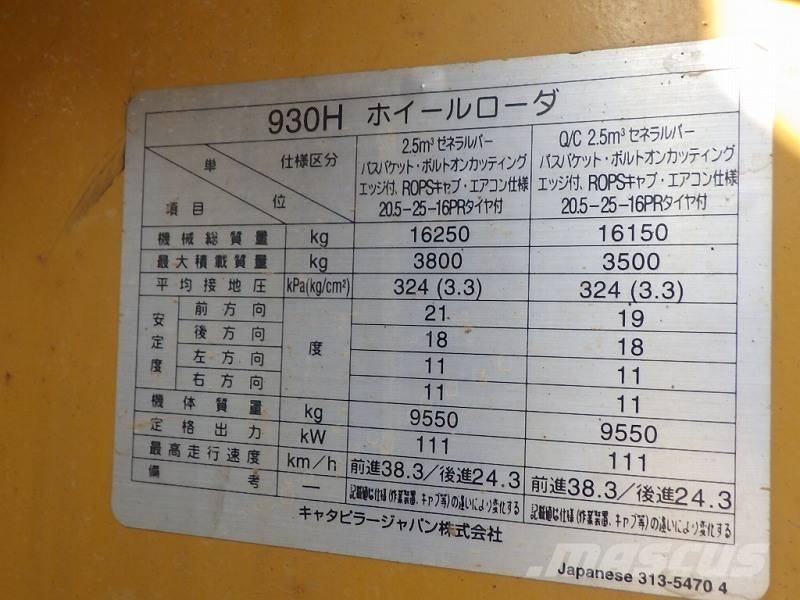 930H ホイールローダ
単位 仕様区分 項目
2.5m³ ゼネラルパー
パスバケット・ボルトオンカッティング
エッジ付、ROPSキャブ・エアコン仕様
20.5-25-16PRタイヤ付
Q/C 2.5m³ ゼネラルパー
パスバケット・ボルトオンカッティング
エッジ付、ROPSキャブ・エアコン仕様
20.5-25-16PRタイヤ付
機械総質量 kg 16250 16150
最大積載質量 kg 3800 3500
平均接地圧 kPa(kg/cm²) 324 (3.3) 324 (3.3)
安定度 前方向 度 21 19
後方向 18 18
左方向 11 11
右方向 11 11
機体質量 kg 9550 9550
定格出力 kW 111 111
最高走行速度 km/h 前進38.3/後進24.3 前進38.3/後進24.3
備考 — 記載値は仕様(作業装置、キャブ等)の違いにより変化する 記載値は仕様(作業装置、キャブ等)の違いにより変化する
キャタピラージャパン株式会社
Japanese 313-5470 4
mascus